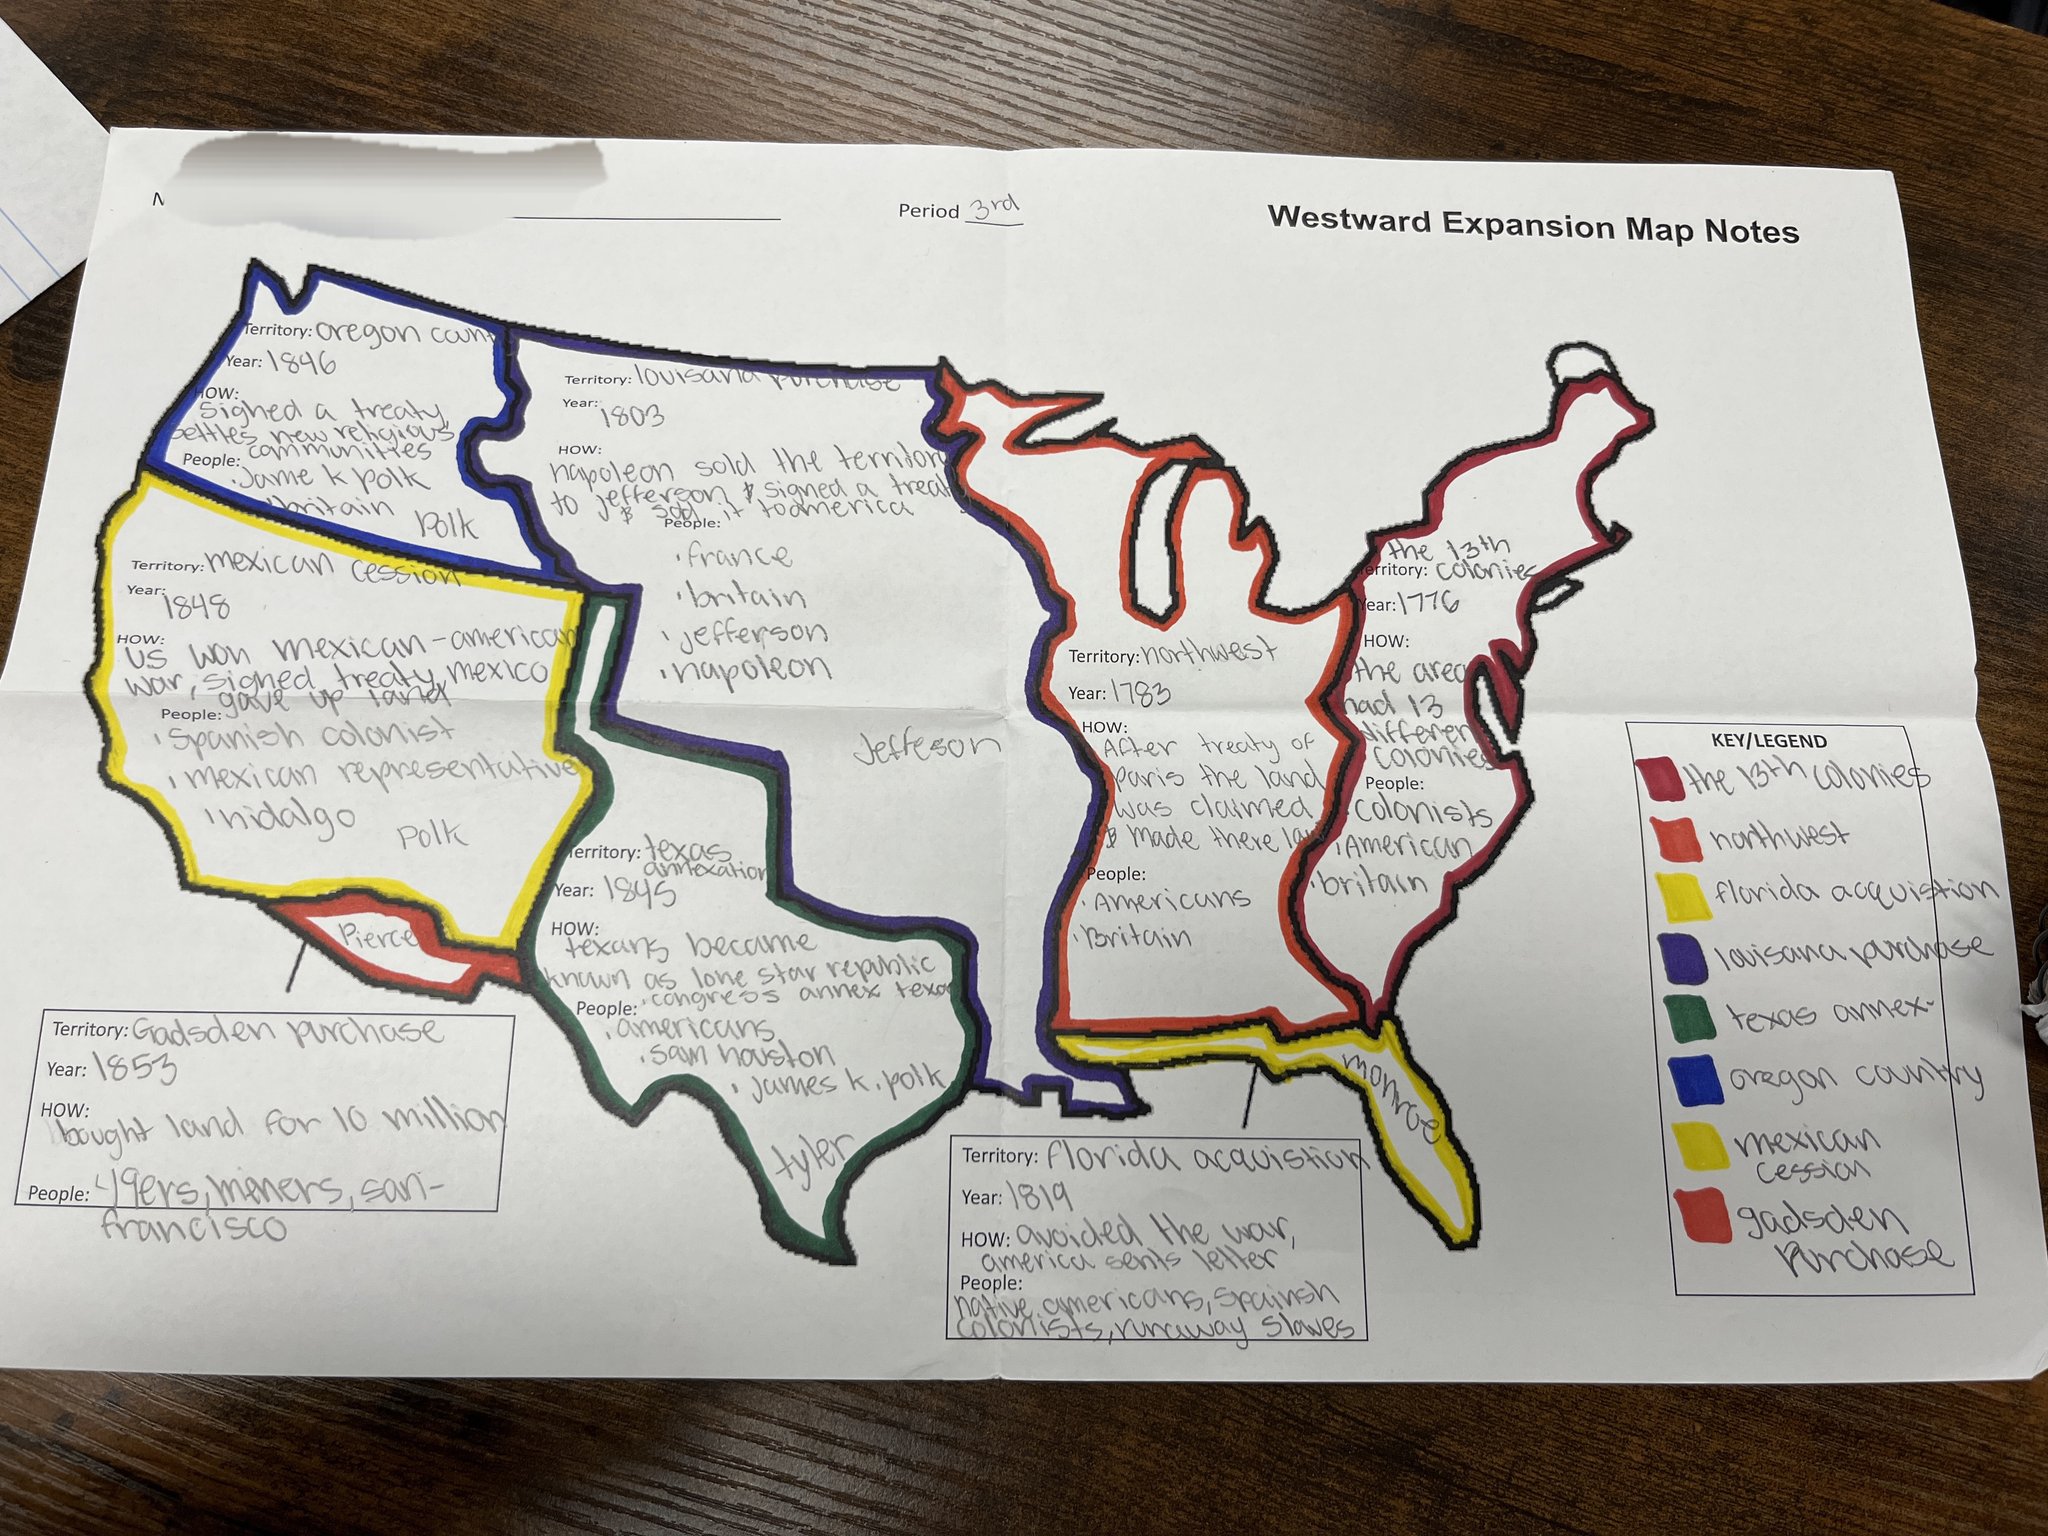 Period 3rd
Westward Expansion Map Notes
Territory: oregon count
Year: 1846
HOW:
signed a treaty
settles new religious
communities
People:
Jame k polk
britain
polk
Territory: mexican cession
Year:
1848
HOW:
US won mexican-american
war, signed treaty, mexico
gave up land
People:
spanish colonist
mexican representative
hidalgo
polk
Territory: louisana purchase
Year:
1803
HOW:
napoleon sold the territory
to jefferson & signed a treaty
& sold it to america
People:
france
britain
jefferson
napoleon
Jeffeson
Territory: texas
annexation
Year: 1845
HOW:
texans became
known as lone star republic
congress annex texas
People:
americans
sam houston
james k. polk
tyler
Territory: northwest
Year: 1783
HOW:
After treaty of
paris the land
was claimed
& made there land
People:
Americans
Britain
the 13th
Territory: colonies
Year: 1776
HOW:
the area
had 13
different
colonies
People:
colonists
American
britain
Pierce
Territory: Gadsden purchase
Year: 1853
HOW:
bought land for 10 million
People: 49ers, miners, san-
francisco
monroe
Territory: florida acquistion
Year: 1819
HOW: avoided the war,
america sents letter
People:
native americans, spainish
colonists, runaway slaves
KEY/LEGEND
the 13th colonies
northwest
florida acquistion
louisana purchase
texas annex-
oregon country
mexican
cession
gadsden
purchase